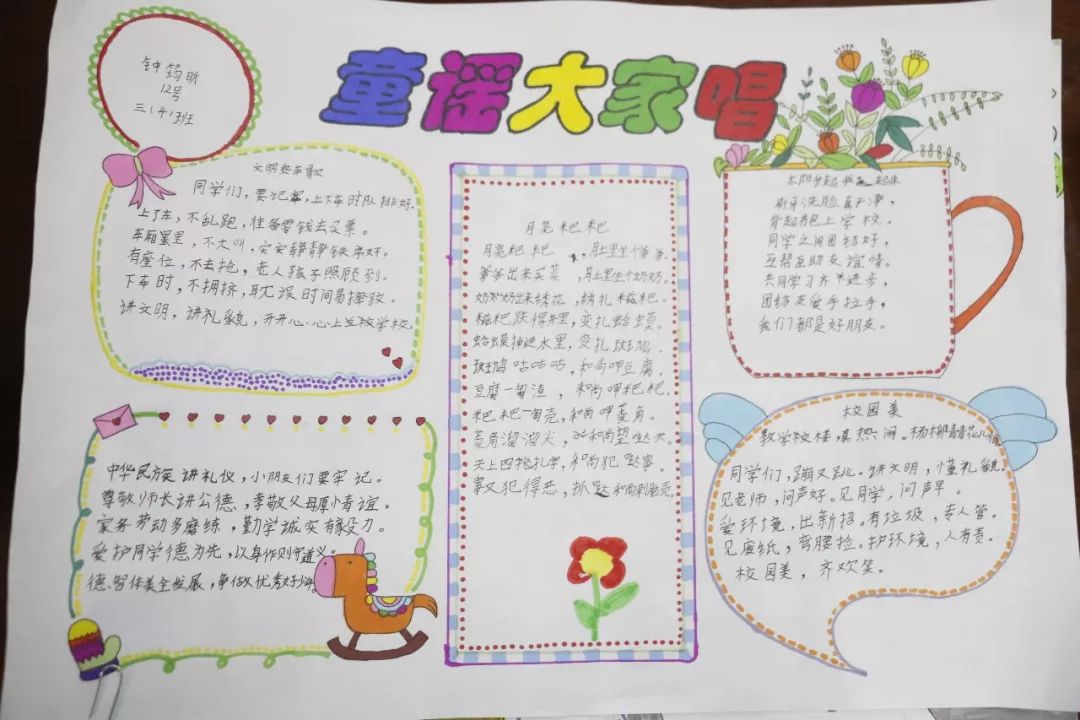 童谣大家唱
钟筠昕
12号
三(4)班
文明乘车歌
同学们，要记牢，上下车时队排好。
上了车，不乱跑，准备零钱去买票。
车厢里，不大叫，安安静静秩序好。
有座位，不去抢，老人孩子照顾到。
下车时，不拥挤，耽误时间易挫政。
讲文明，讲礼貌，开开心心上学校。
中华民族讲礼仪，小朋友们要牢记。
尊敬师长讲公德，孝敬父母厚情谊。
家务劳动多磨练，勤学诚实有毅力。
爱护同学德为先，以身作则守道义。
德、智体美全发展，争做优秀好
月亮粑粑
月亮粑粑，月土里坐个爹爹。
爹爹出来买菜，月土里坐个奶奶。
奶奶出来绣花，绣扎糍粑。
糍粑跌得井里，变扎蛤蟆。
蛤蟆掉进水里，变扎斑鸠。
斑鸠咕咕咕，和尚呷豆腐。
豆腐一匍渣，和尚呷粑粑。
粑粑一匍壳，和尚呷菱角。
菱角溜溜尖，和尚望哒天。
天上四扎字，和尚犯哒事。
事又犯得恶，抓哒和尚剁脑壳。
太阳升起我 起床
刷牙洗脸真干净，
背起书包上学校。
同学之间团结好，
互帮互助友谊情。
共同学习齐进步，
团结友爱手拉手，
我们都是好朋友。
校园美
教学校楼，真热闹。杨柳青青花儿俏
同学们，蹦又跳。讲文明，懂礼貌。
见老师，问声好。见同学，问声早。
爱环境，出新招。有垃圾，专人管。
见废纸，弯腰捡。护环境，人有责。
校园美，齐欢笑。